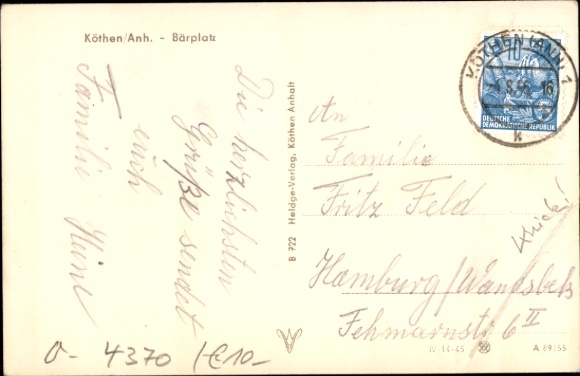 Köthen/Anh. - Bärplatz
Die herzlichsten
Grüße sendet
euch
Familie Heine
B 722 Heldge-Verlag, Köthen Anhalt
KÖTHEN (ANH) 1
10
DEUTSCHE
DEMOKRATISCHE REPUBLIK
k
An
Familie
Fritz Feld
Hamburg/Wandsbek
Fehmarnstr 6 II
IV-14-45
A 89/55
0- 4370 1€10-